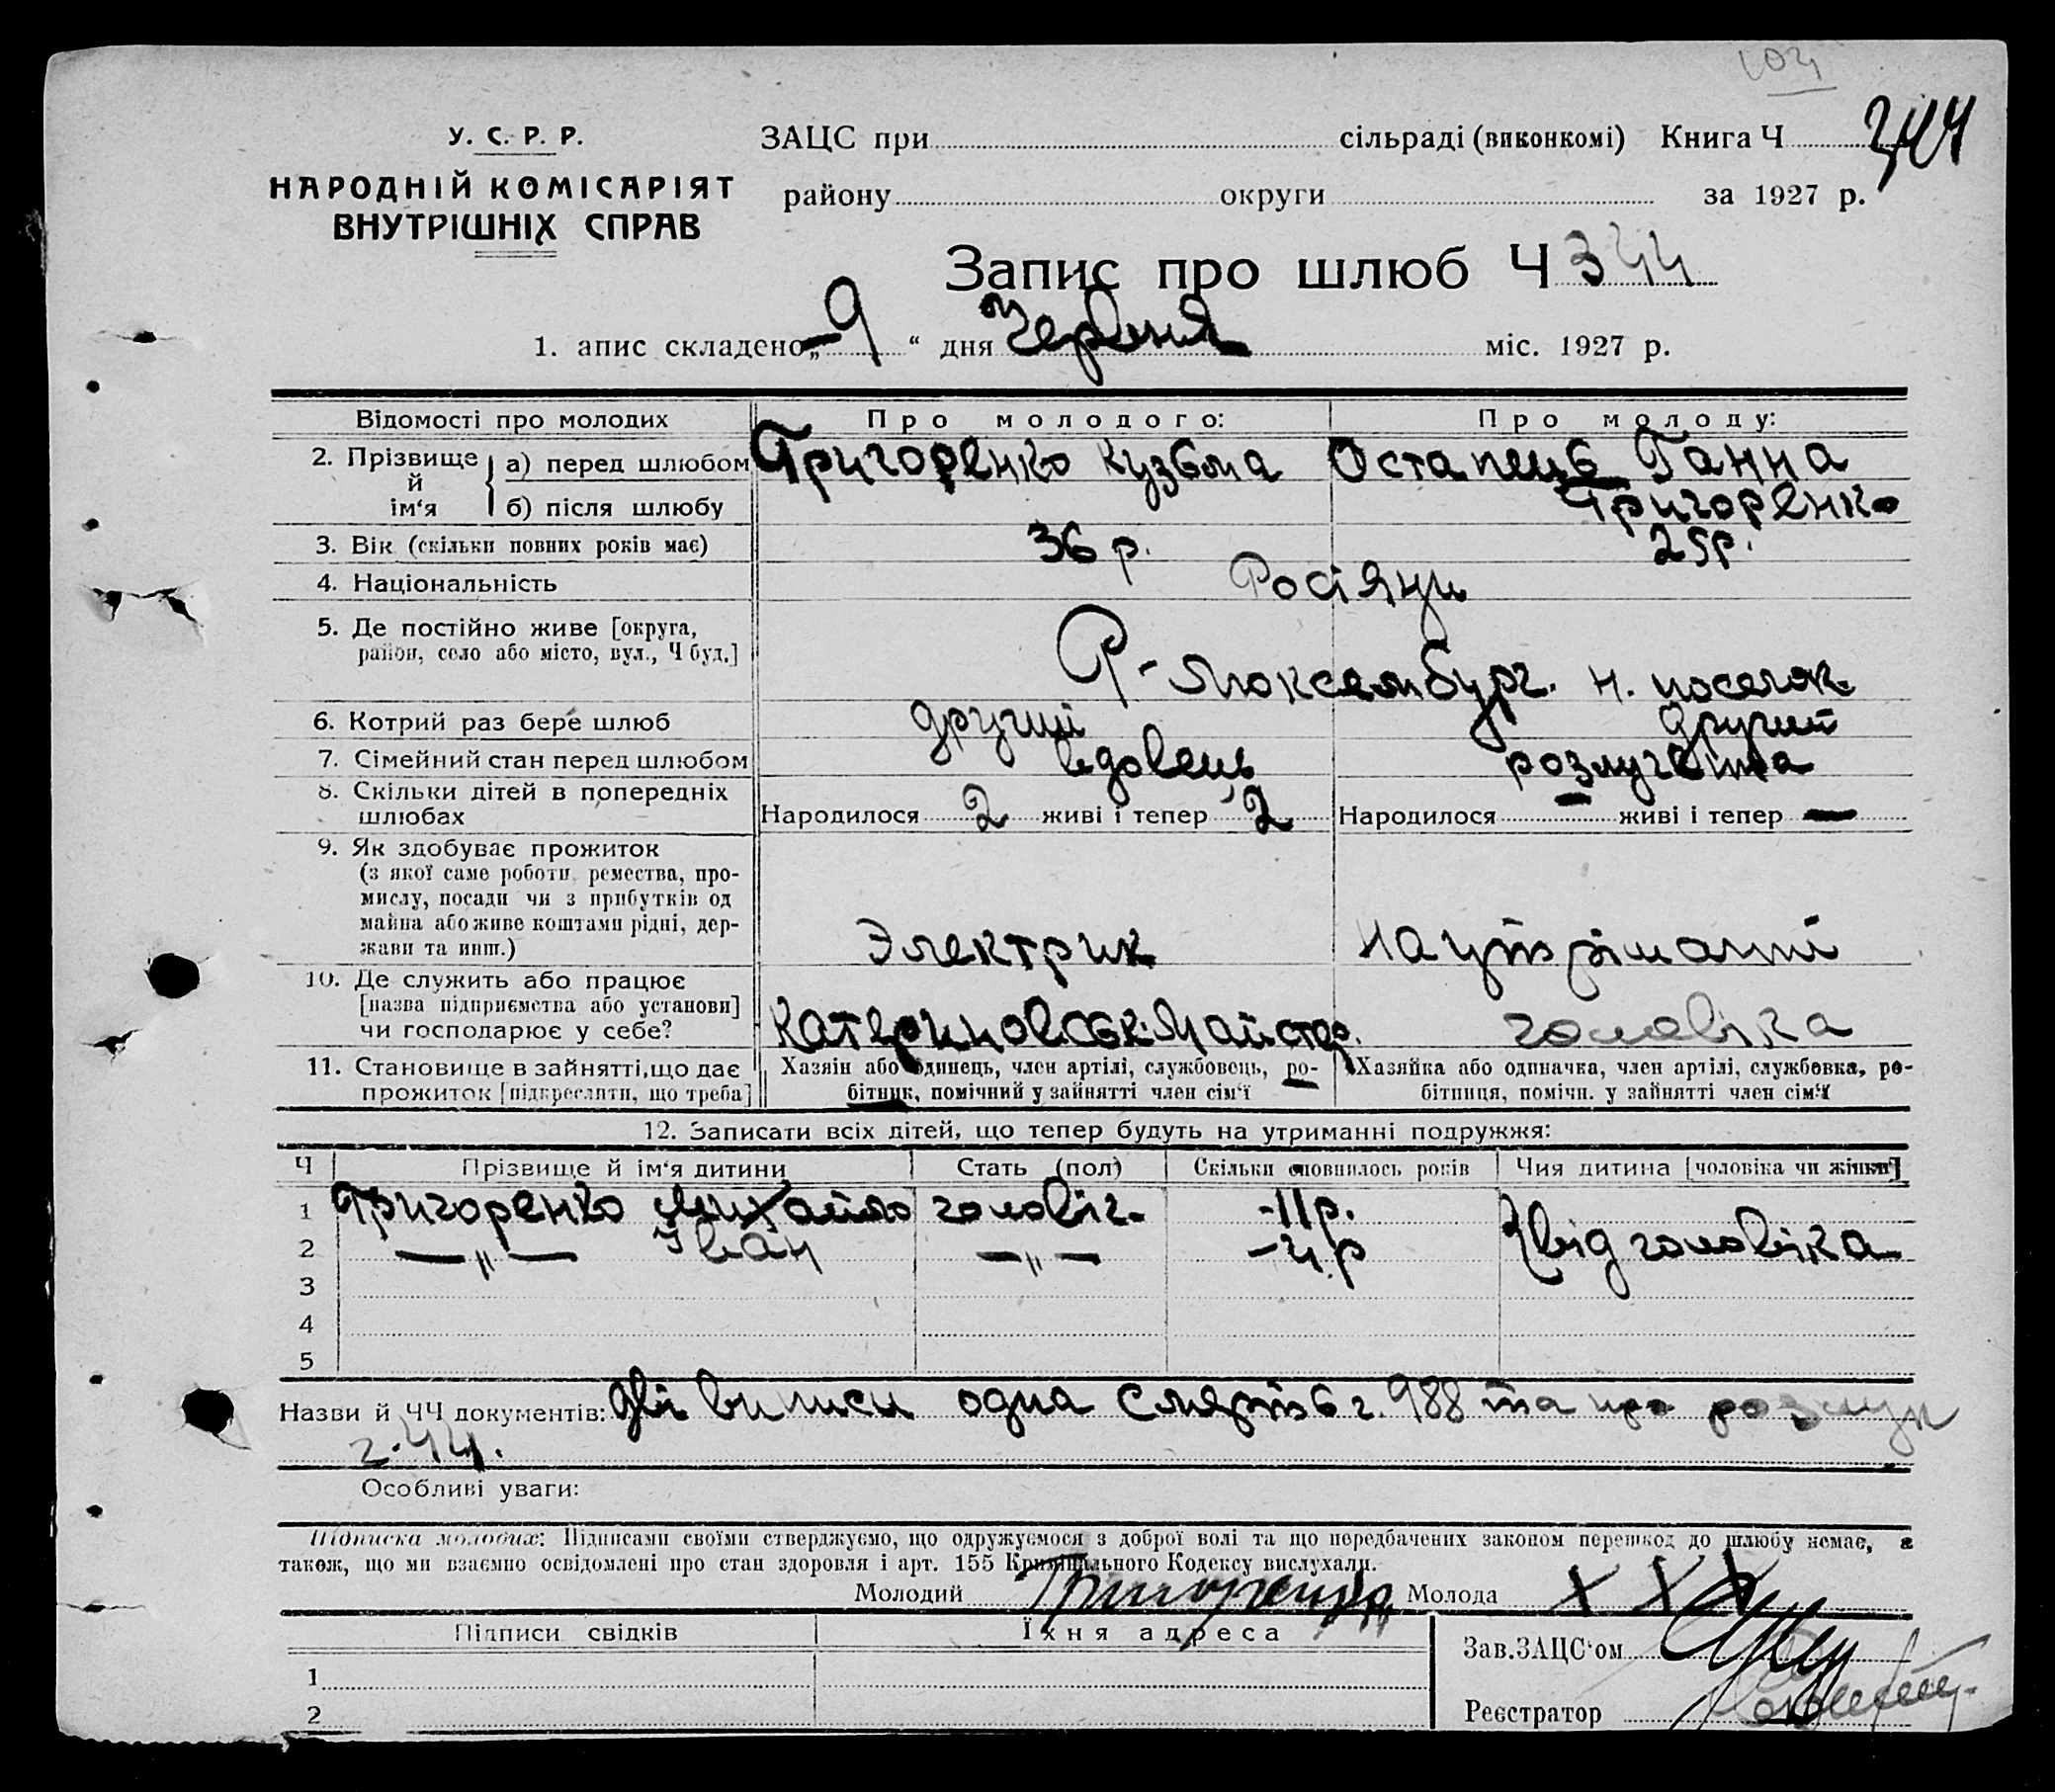 104
У. С. Р. Р.
НАРОДНІЙ КОМІСАРІЯТ
ВНУТРІШНІХ СПРАВ
ЗАЦС при сільраді (виконкомі) Книга Ч 344
району округи за 1927 р.
Запис про шлюб Ч 344
1. апис складено „9“ дня Червня міс. 1927 р.
Відомості про молодих Про молодого: Про молоду:
2. Прізвище й ім‘я а) перед шлюбом Григоренко Кузьма Остапець Ганна
б) після шлюбу Григоренко
3. Вік (скільки повних років має) 36 р. 25р.
4. Національність Росіяни
5. Де постійно живе [округа,
район, село або місто, вул., Ч буд.] Р-Люксембург. н. поселок.
6. Котрий раз бере шлюб другий другий
7. Сімейний стан перед шлюбом вдовець розлучена
8. Скільки дітей в попередніх
шлюбах Народилося 2 живі і тепер 2 Народилося — живі і тепер —
9. Як здобуває прожиток
(з якої саме роботи, ремества, про-
мислу, посади чи з прибутків од
майна або живе коштами рідні, дер-
жави та инш.) Электрик на утріманні
10. Де служить або працює
[назва підприємства або установи]
чи господарює у себе? Катериновськ. Майстер. чоловіка
11. Становище в зайнятті, що дає
прожиток [підкреслити, що треба]
Хазяін або одинець, член артілі, службовець, ро-
бітник, помічний у зайнятті член сім‘ї
Хазяйка або одиначка, член артілі, службовка, ро-
бітниця, помічн. у зайнятті член сім‘ї
12. Записати всіх дітей, що тепер будуть на утриманні подружжя:
Ч Прізвище й ім‘я дитини Стать (пол) Скільки сповнилось років Чия дитина [чоловіка чи жінки]
1 Григоренко Михайло чоловіч. -11р.
2 —„— Іван —„— -4.р від чоловіка
3
4
5
Назви й ЧЧ документів: дві виписи одна смерть ч. 988 та про розлук
ч. 44.
Особливі уваги:
Підписка молодих: Підписами своїми стверджуємо, що одружуємося з доброї волі та що передбачених законом перешкод до шлюбу немає, а
також, що ми взаємно освідомлені про стан здоровля і арт. 155 Кримінального Кодексу вислухали.
Молодий Григоренко Молода Х Х Х
Підписи свідків Їхня адреса
Зав. ЗАЦС‘ом
1
2
Реєстратор